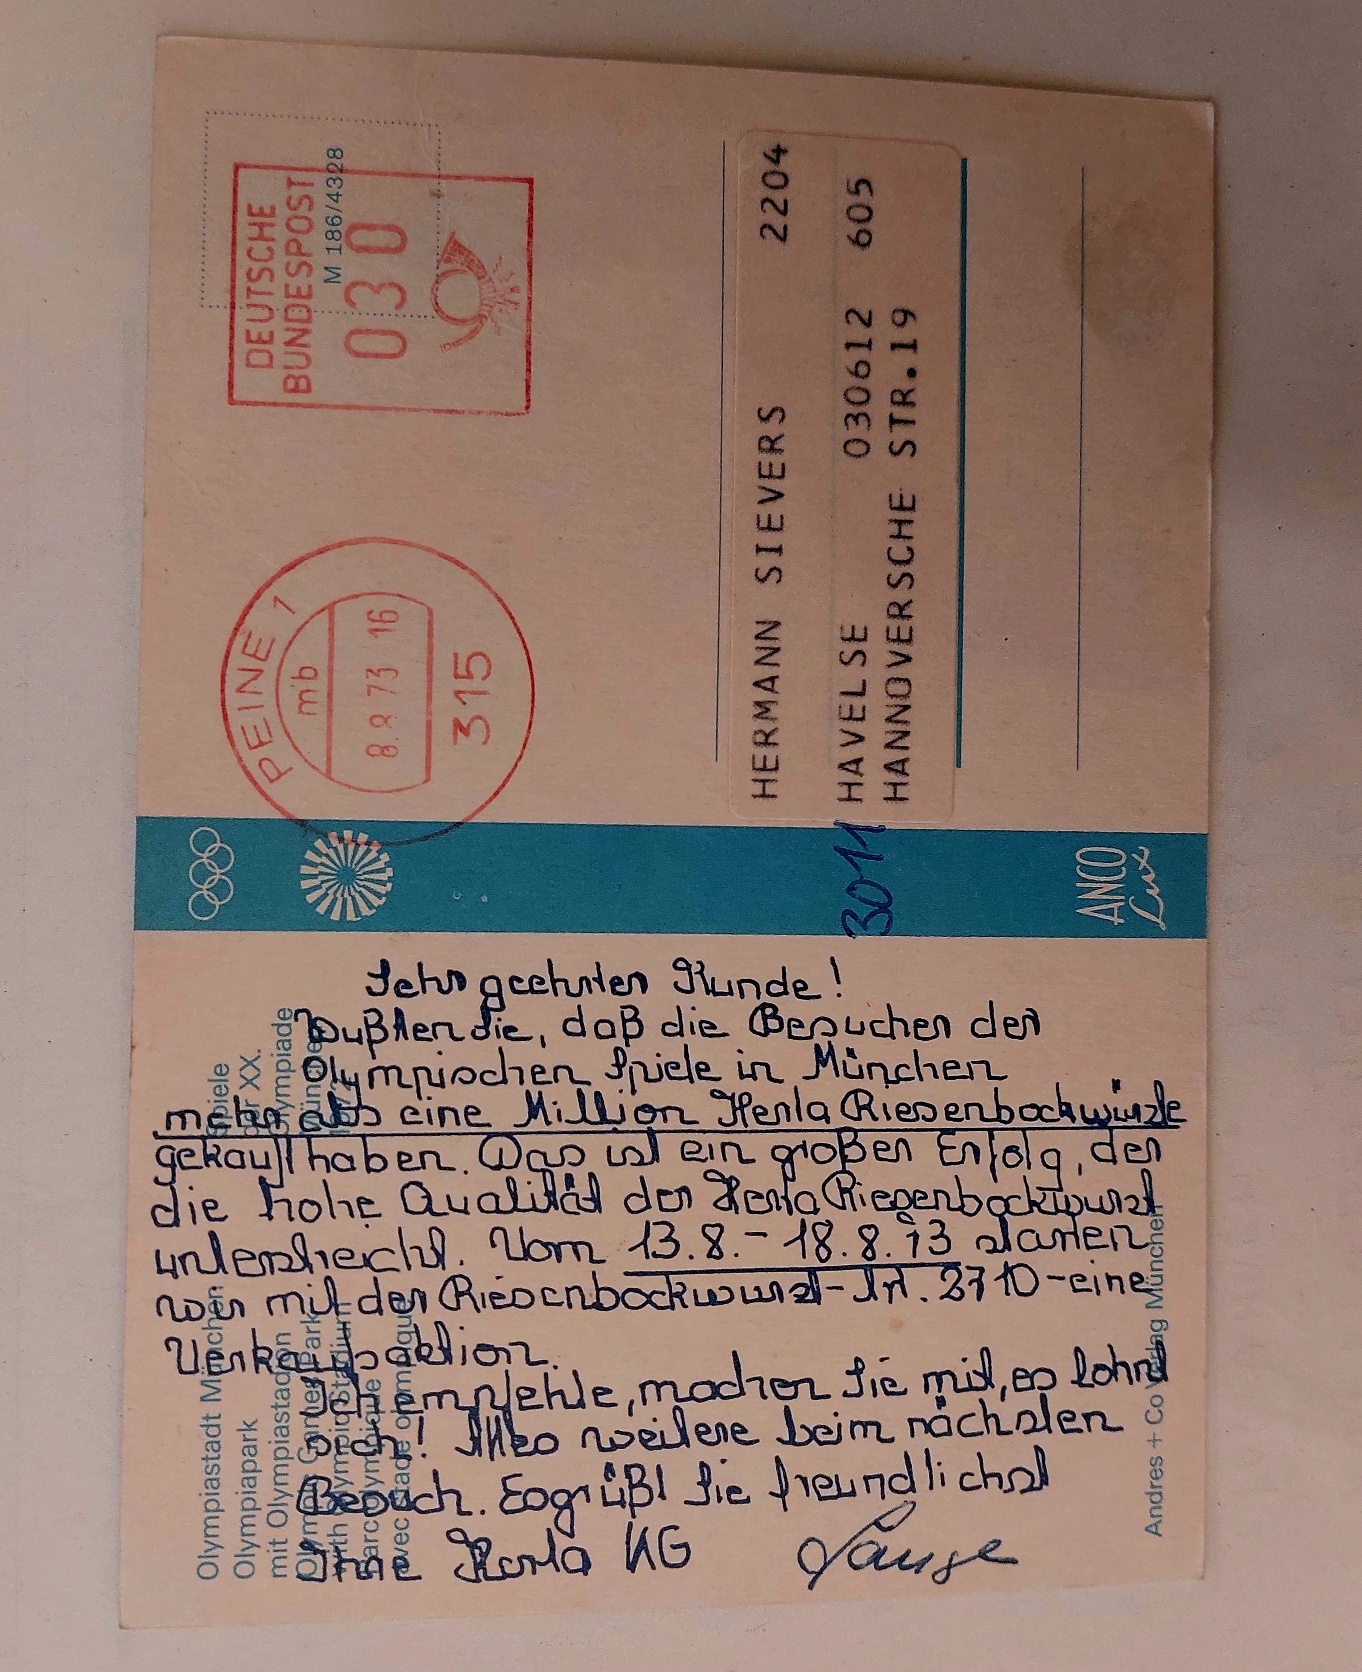 DEUTSCHE
BUNDESPOST
M 186/4328
030
PEINE 1
mb
8.8.73 16
315
HERMANN SIEVERS 2204
030612 605
3011 HAVELSE
HANNOVERSCHE STR.19
ANCO
Lux
Sehr geehrter Kunde!
Wußten Sie, daß die Besucher der
Olympischen Spiele in München
mehr als eine Million Herta Riesenbockwürste
gekauft haben. Das ist ein großer Erfolg, der
die hohe Qualität der Herta Riesenbockwurst
unterstreicht. Vom 13.8.-18.8.73 starten
wir mit der Riesenbockwurst-Art. 2710-eine
Verkaufsaktion.
Ich empfehle, machen Sie mit, es lohnt
sich! Alles weitere beim nächsten
Besuch. Es grüßt Sie freundlichst
Ihre Herta KG
Olympiastadt München
Olympiapark
mit Olympiastadion
Spiele
der XX.
Olympiade
München
Andres + Co Verlag München